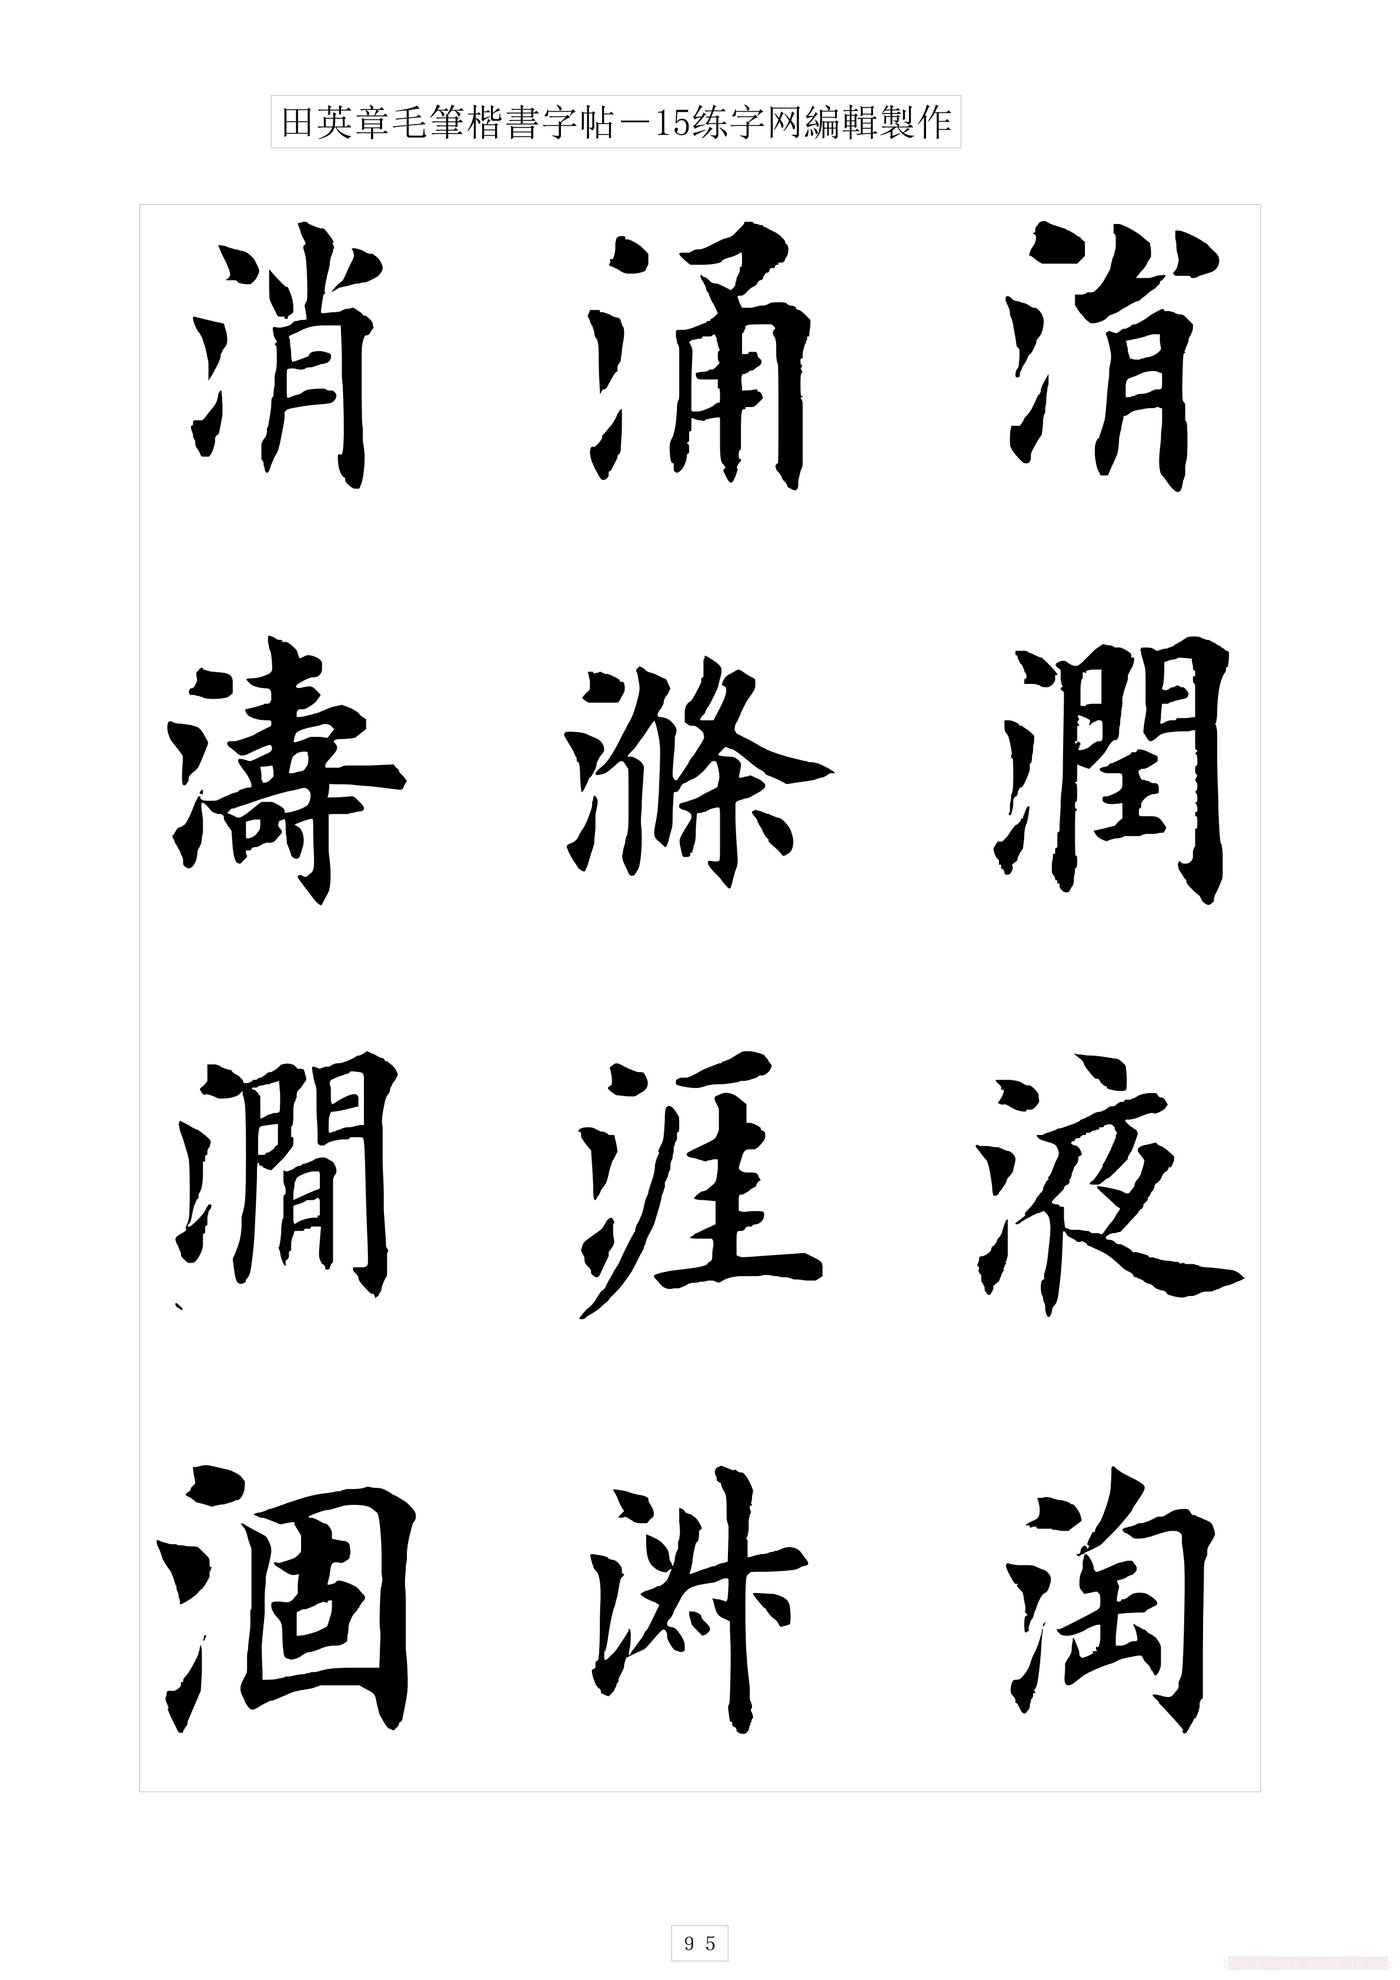 田英章毛筆楷書字帖－15练字网編輯製作
消 涌 涓
濤 滌 潤
澗 涯 液
涸 淘
95